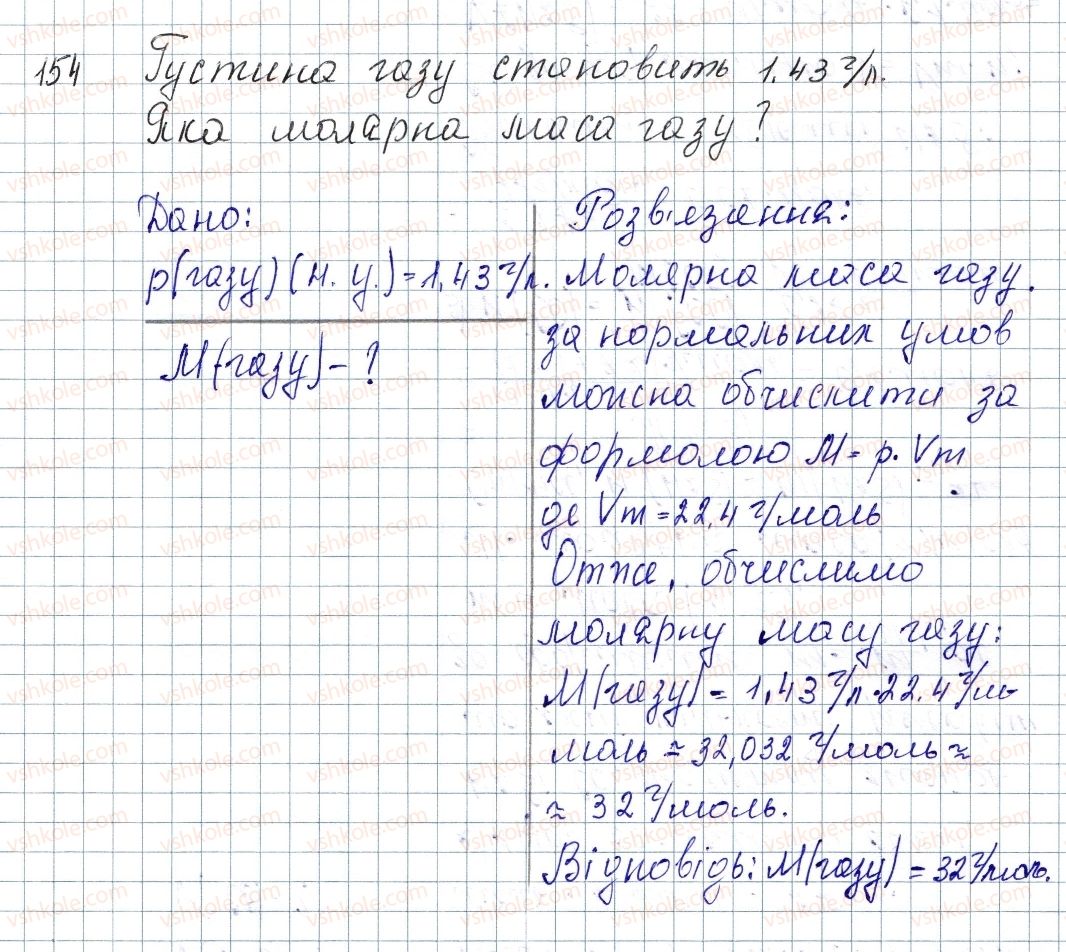 154 Густина газу становить 1.43 г/л.
Яка молярна маса газу?
Дано:
ρ(газу) (н. у.) = 1,43 г/л.
M(газу) - ?
Розв'язання:
Молярна маса газу.
за нормальних умов
можна обчислити за
формолою M = ρ · Vm
де Vm = 22,4 г/моль
Отже, обчислимо
молярну масу газу:
M(газу) = 1,43 г/л · 22.4 г/м-
моль ≈ 32,032 г/моль ≈
≈ 32 г/моль.
Відповідь: M(газу) = 32 г/моль.
vshkole.com